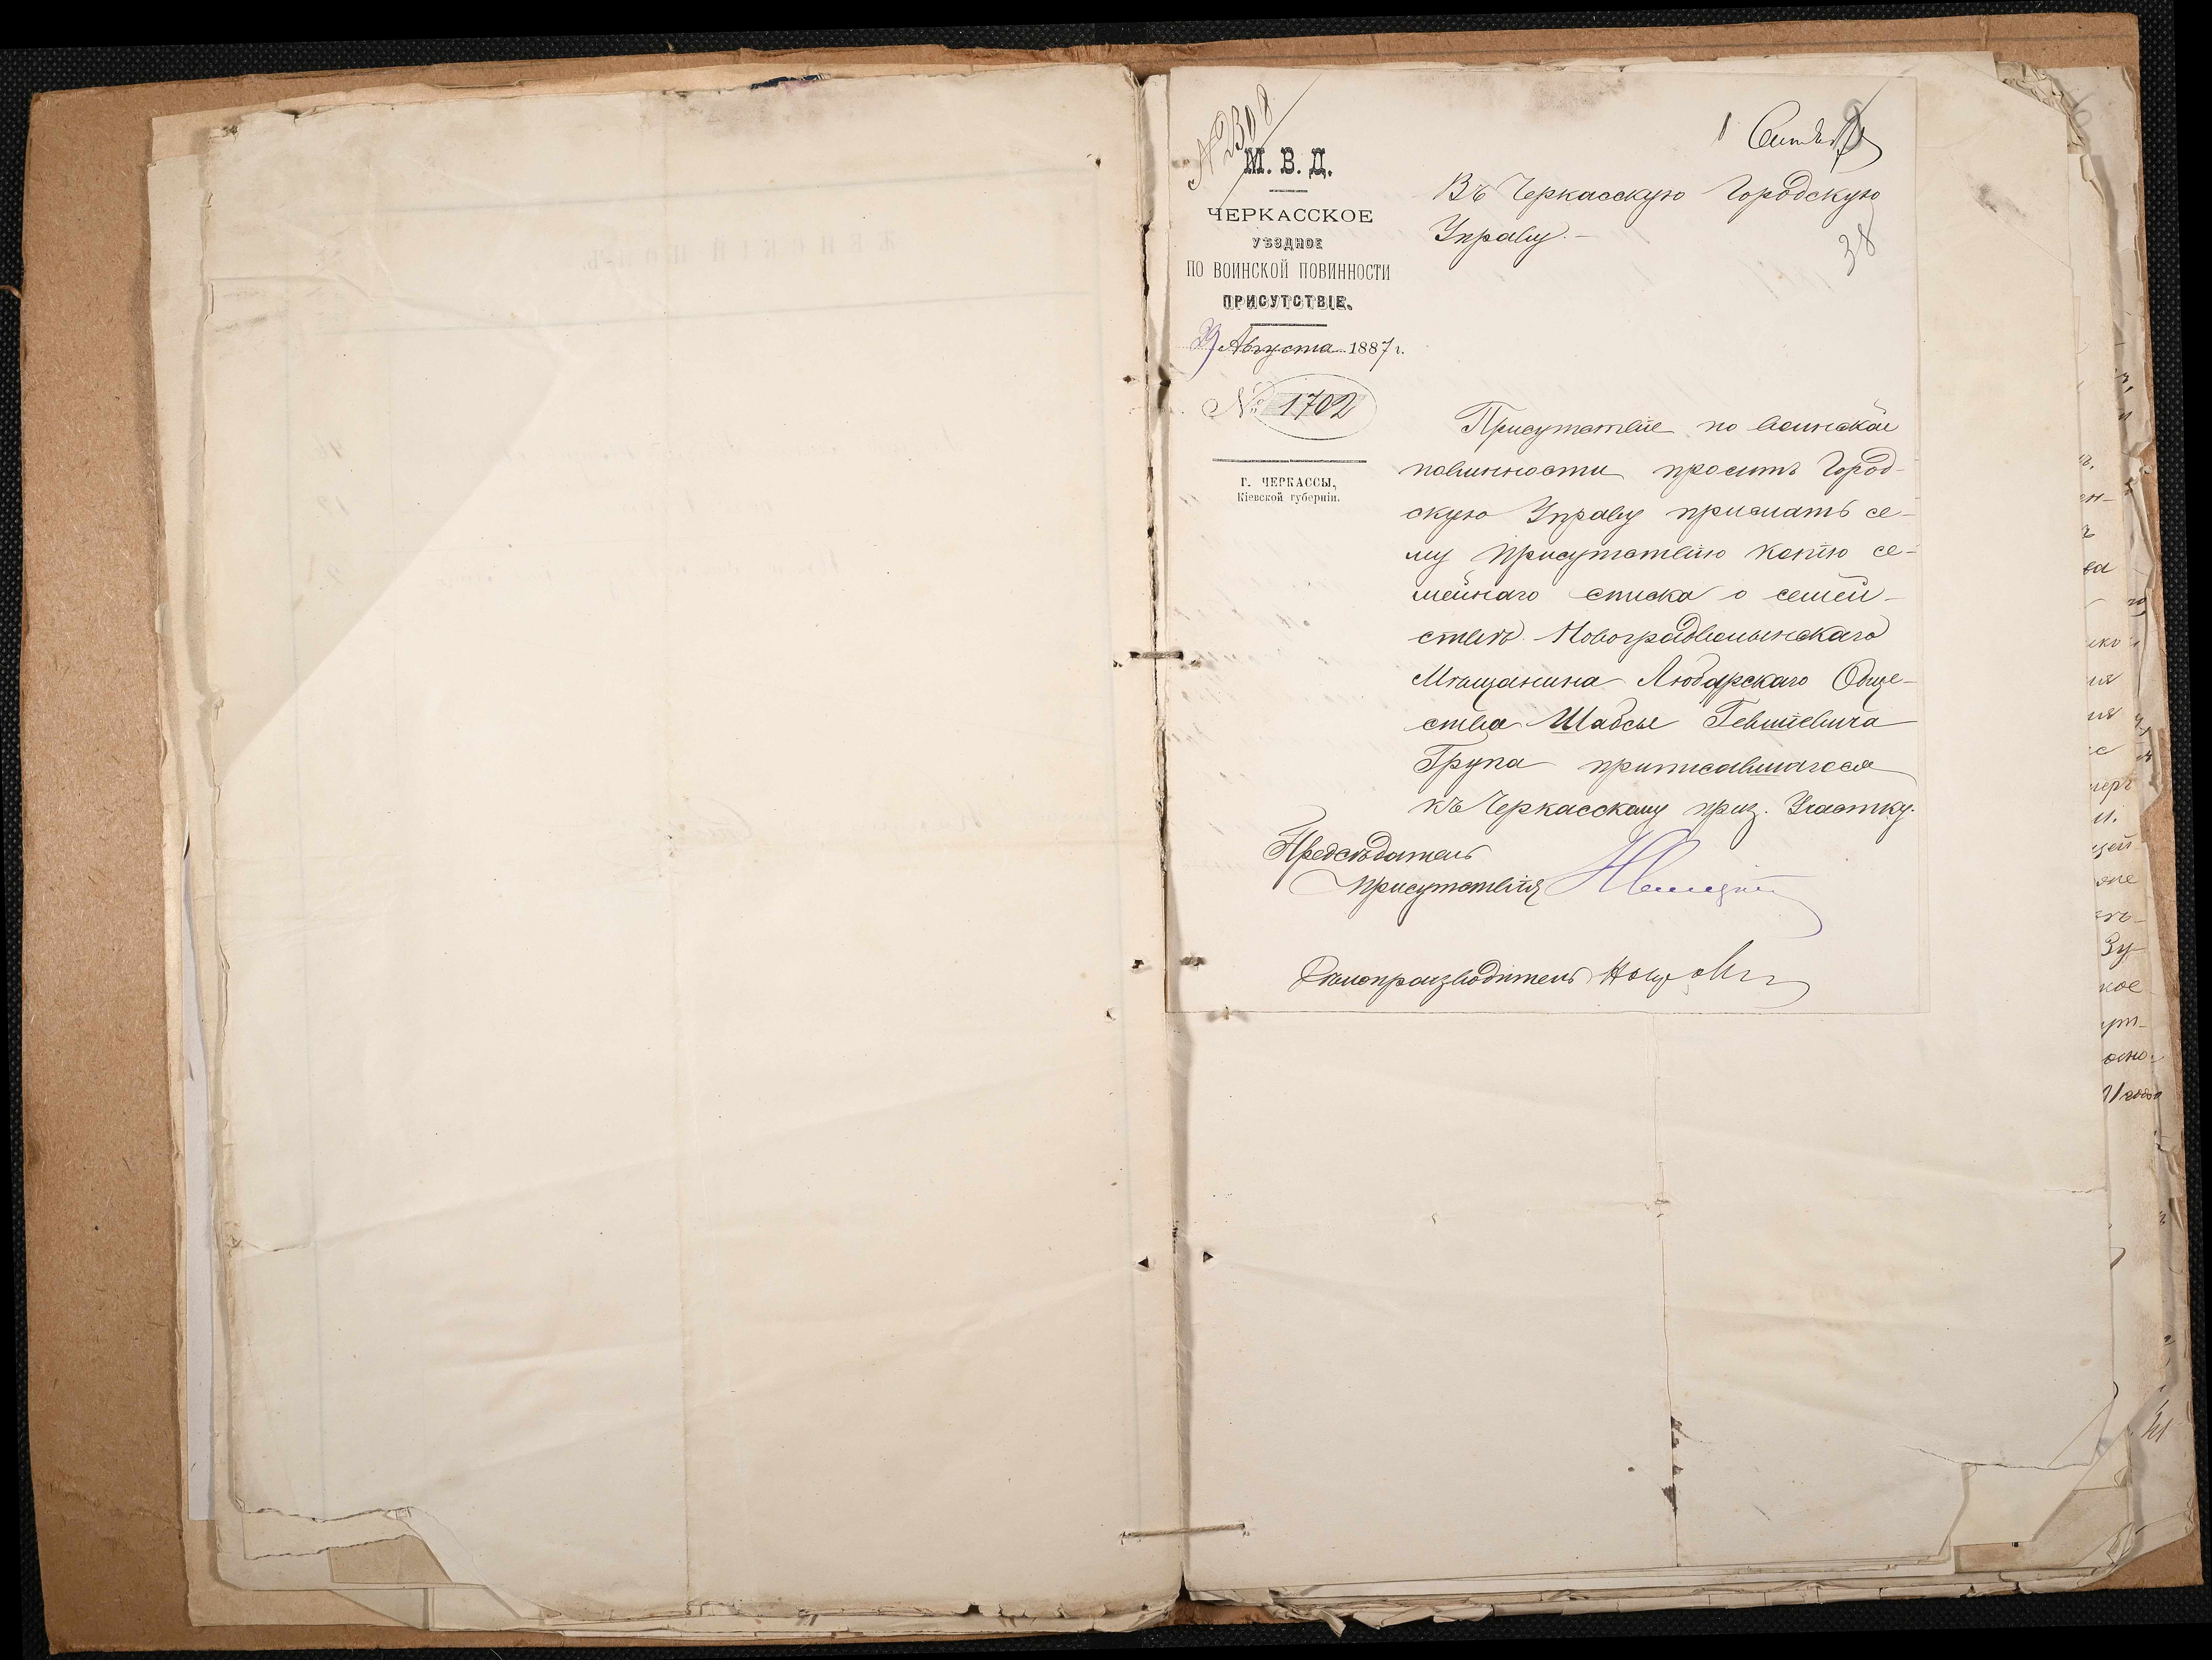 № 2308
1 Сентября
М. В. Д.
ЧЕРКАССКОЕ
УѢЗДНОЕ
ПО ВОИНСКОЙ ПОВИННОСТИ
ПРИСУТСТВІЕ.
29 Августа 1887 г.
№ 1702
Г. ЧЕРКАССЫ,
Кіевской губерніи.
Въ Черкасскую Городскую
Управу.-
38
Присутствіе по воинской
повинности проситъ Город-
скую Управу прислать се-
му Присутствію копію се-
мейнаго списка о семей-
ствѣ Новоградволынскаго
Мѣщанина Любарскаго Обще-
ства Шабсы Гевшіевича
Група приписавшагося
къ Черкасскому приз. Участку.
Предсѣдатель
присутствія
Дѣлопроизводитель
ЖЕНСКІЙ ПОЛЪ.